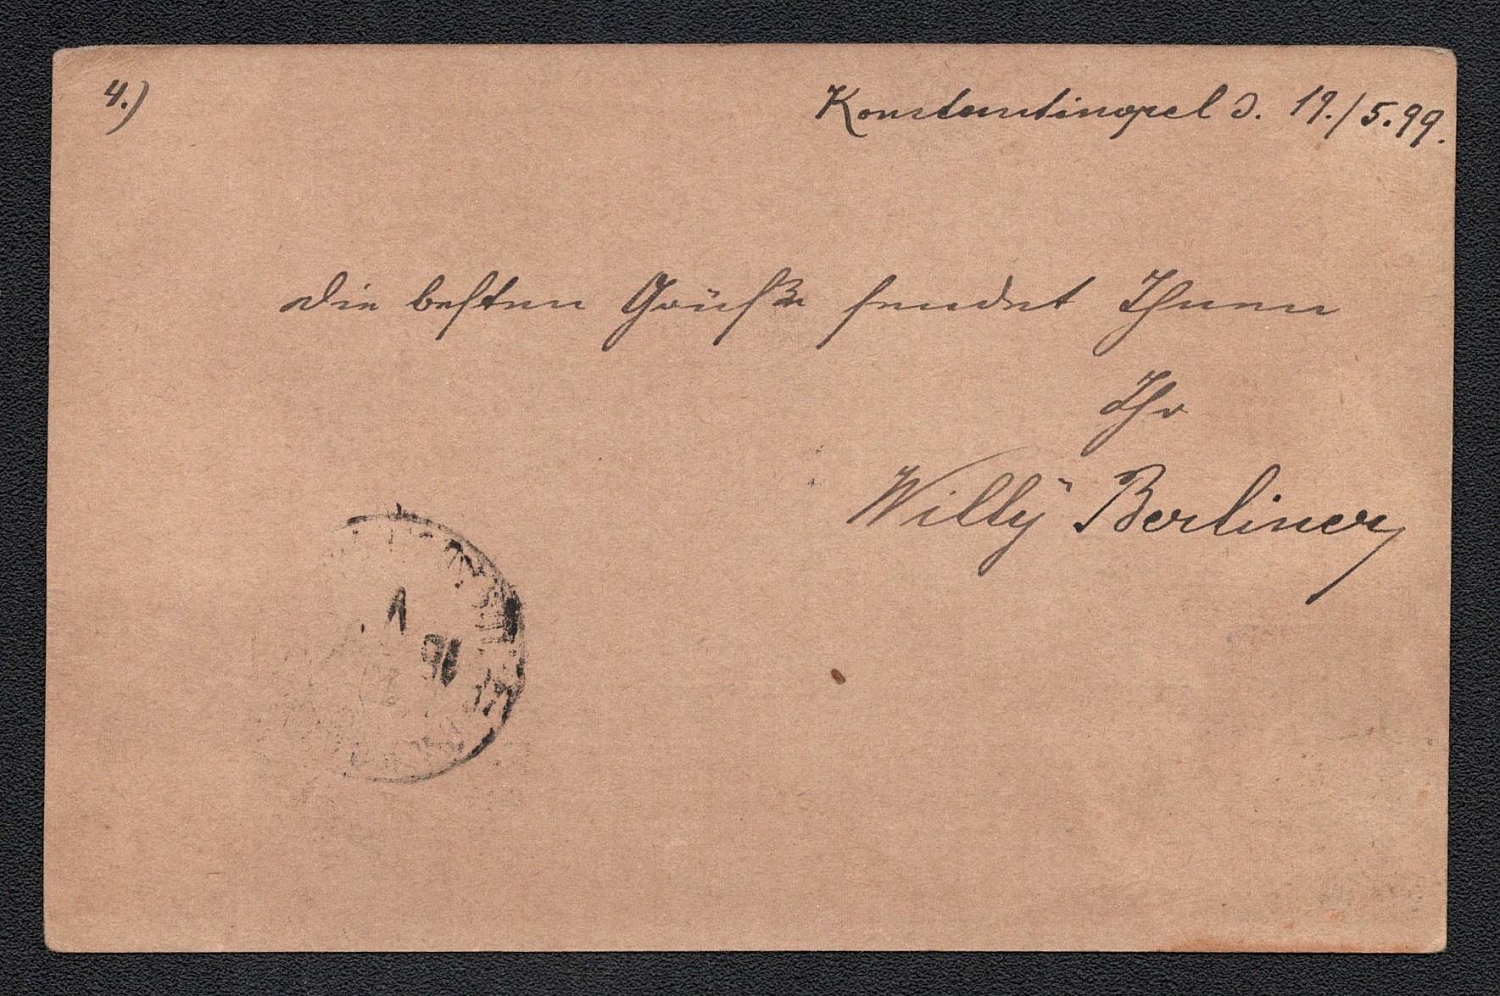 4.)
Konstantinopel d. 19./5.99.
Die besten Grüße sendet Ihnen
Ihr
Willÿ Berliner